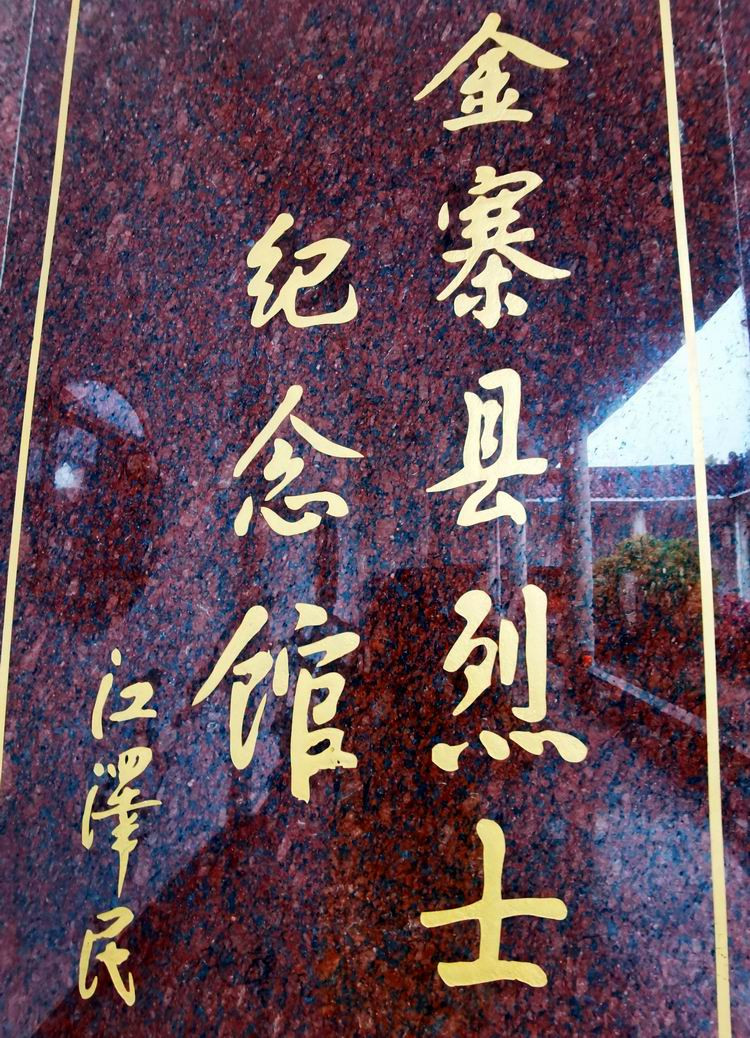 金寨县烈士
纪念馆
江澤民